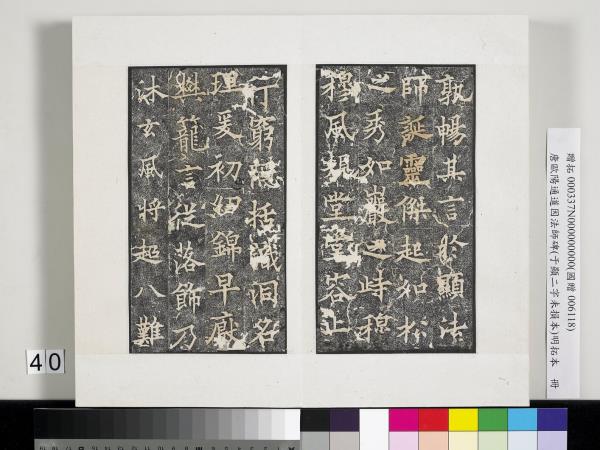 孰暢其言於顯法
師誕靈傑起如松
之秀如巖之峙穆
穆風規堂堂容止
行窮隱括識洞名
理爰初錦早厭
樊籠言從落飾乃
沐玄風將超八難
贈拓 000337N000000000(國贈 006118)
唐歐陽通道因法師碑(于顯二字未損本)明拓本 冊
40